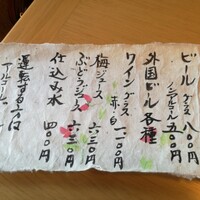 ビール グラス 八〇〇円
ノンアルコール 五〇〇円
外国ビール各種
ワイン グラス 赤・白 一、一〇〇円
梅ジュース 六三〇円
ぶどうジュース 六三〇円
仕込み水 四〇〇円
運転する方は
アルコール